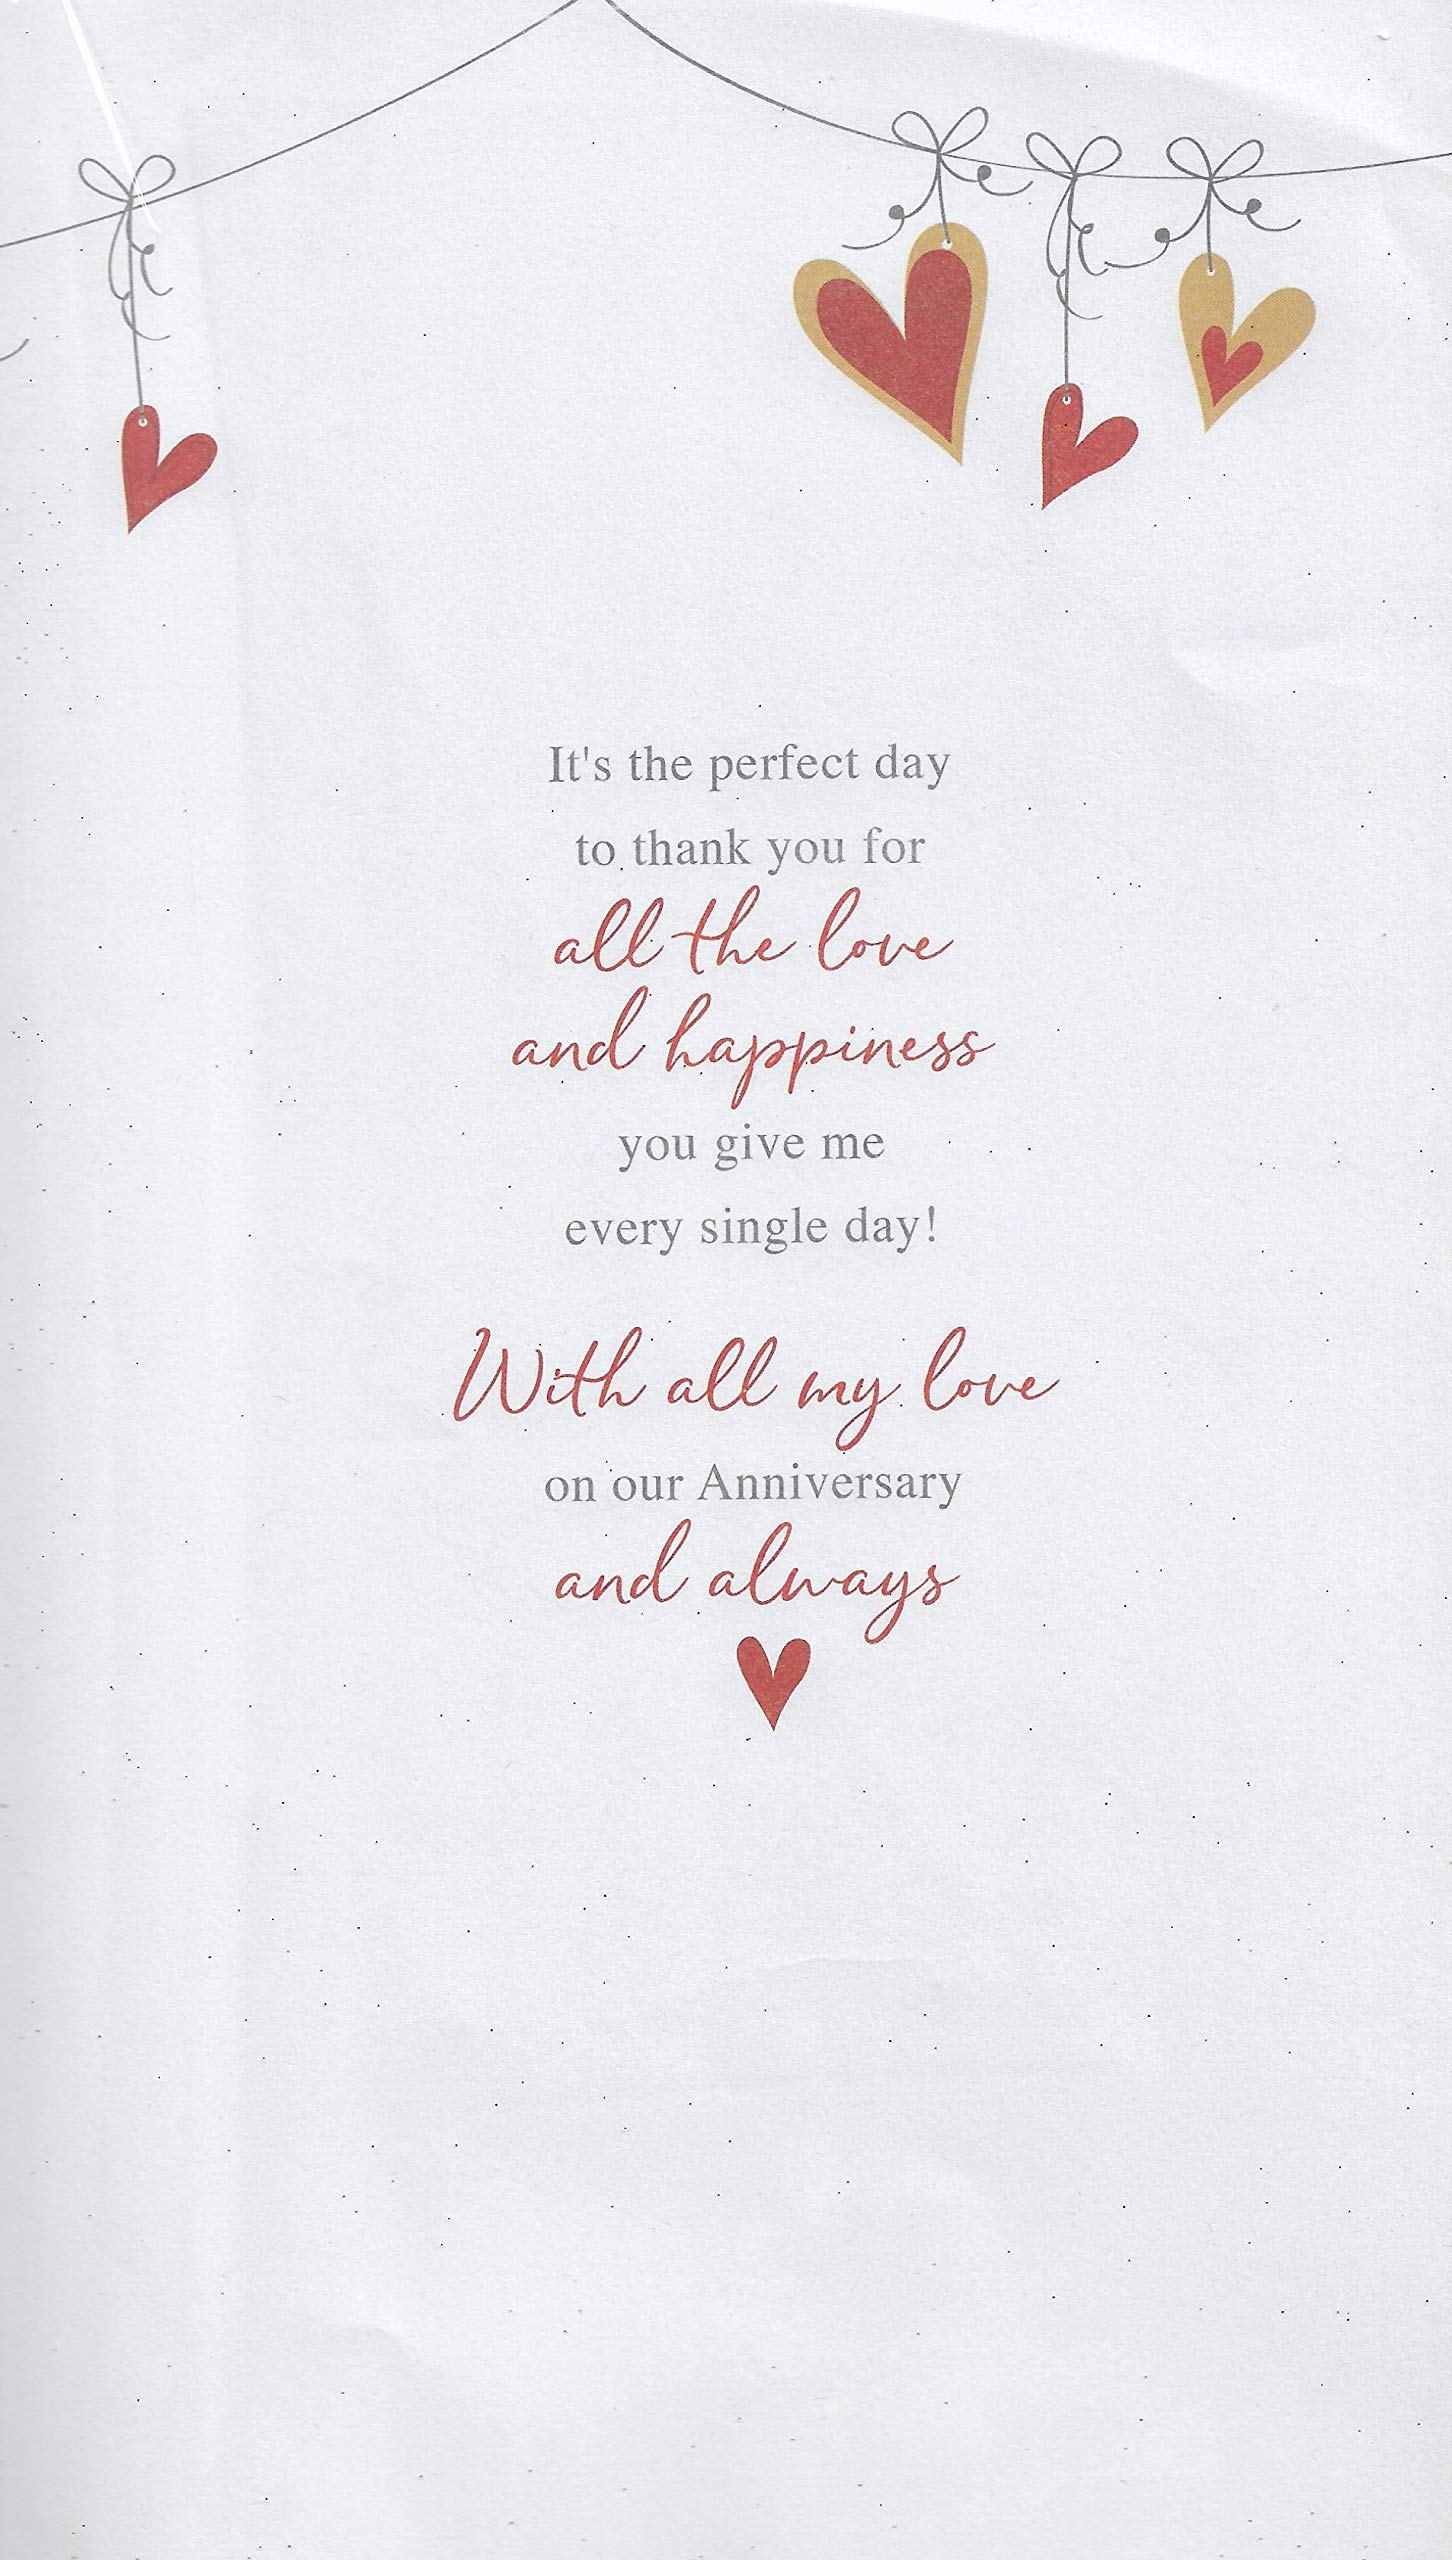 It's the perfect day
to thank you for
all the love
and happiness
you give me
every single day!
With all my love
on our Anniversary
and always